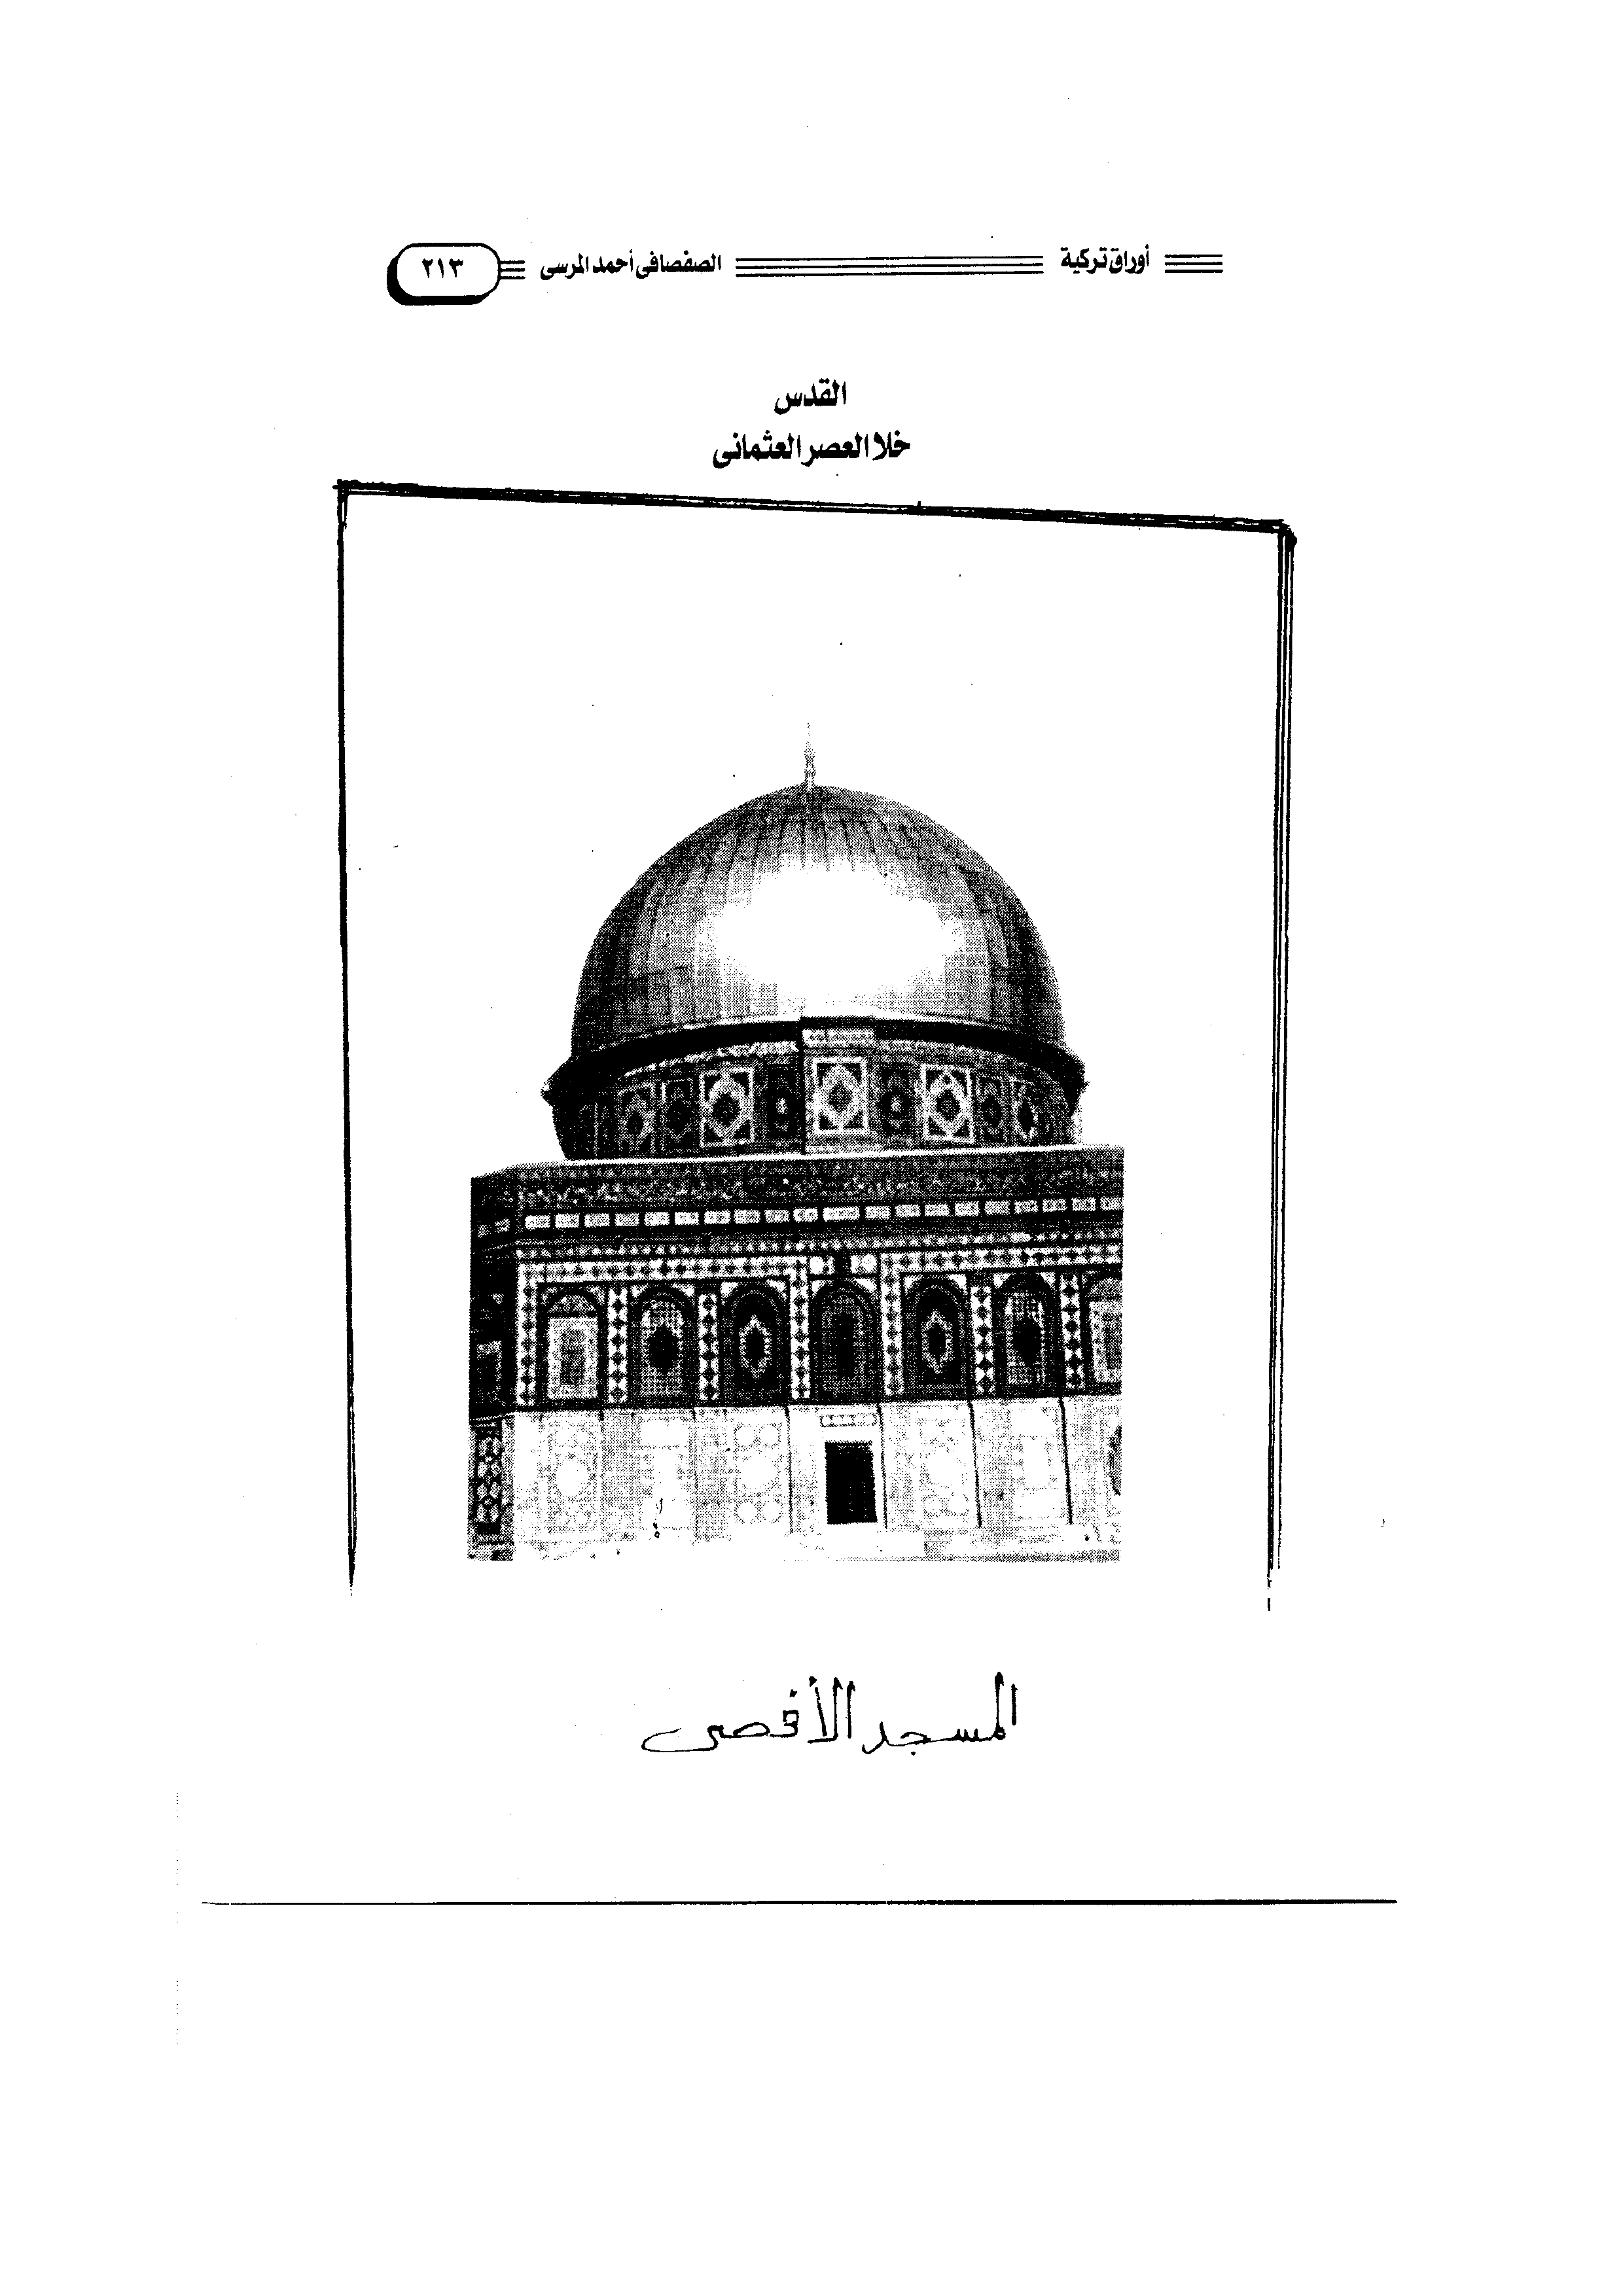 أوراق تركية الصفصافى أحمد المرسى ٢١٣
القدس
خلا العصر العثمانى
المسجد الأقصى